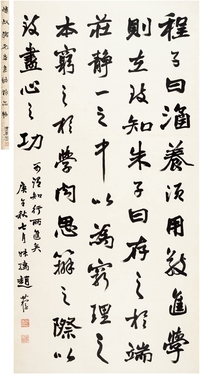 程子曰涵養須用敬進學
則在致知朱子曰存之於端
莊静一之中以為窮理之
本窮之於學問思辯之際以
致盡心之功
可謂知行兩進矣
庚午秋七月